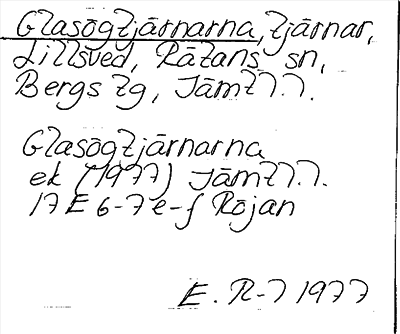 Glasögtjärnarna, tjärnar,
Lillsved, Rätans sn,
Bergs tg, Jämtl.l.
Glasögtjärnarna
ek (1977) Jämtl.l.
17 E 6-7 e-f Röjan
E. R-l 1977